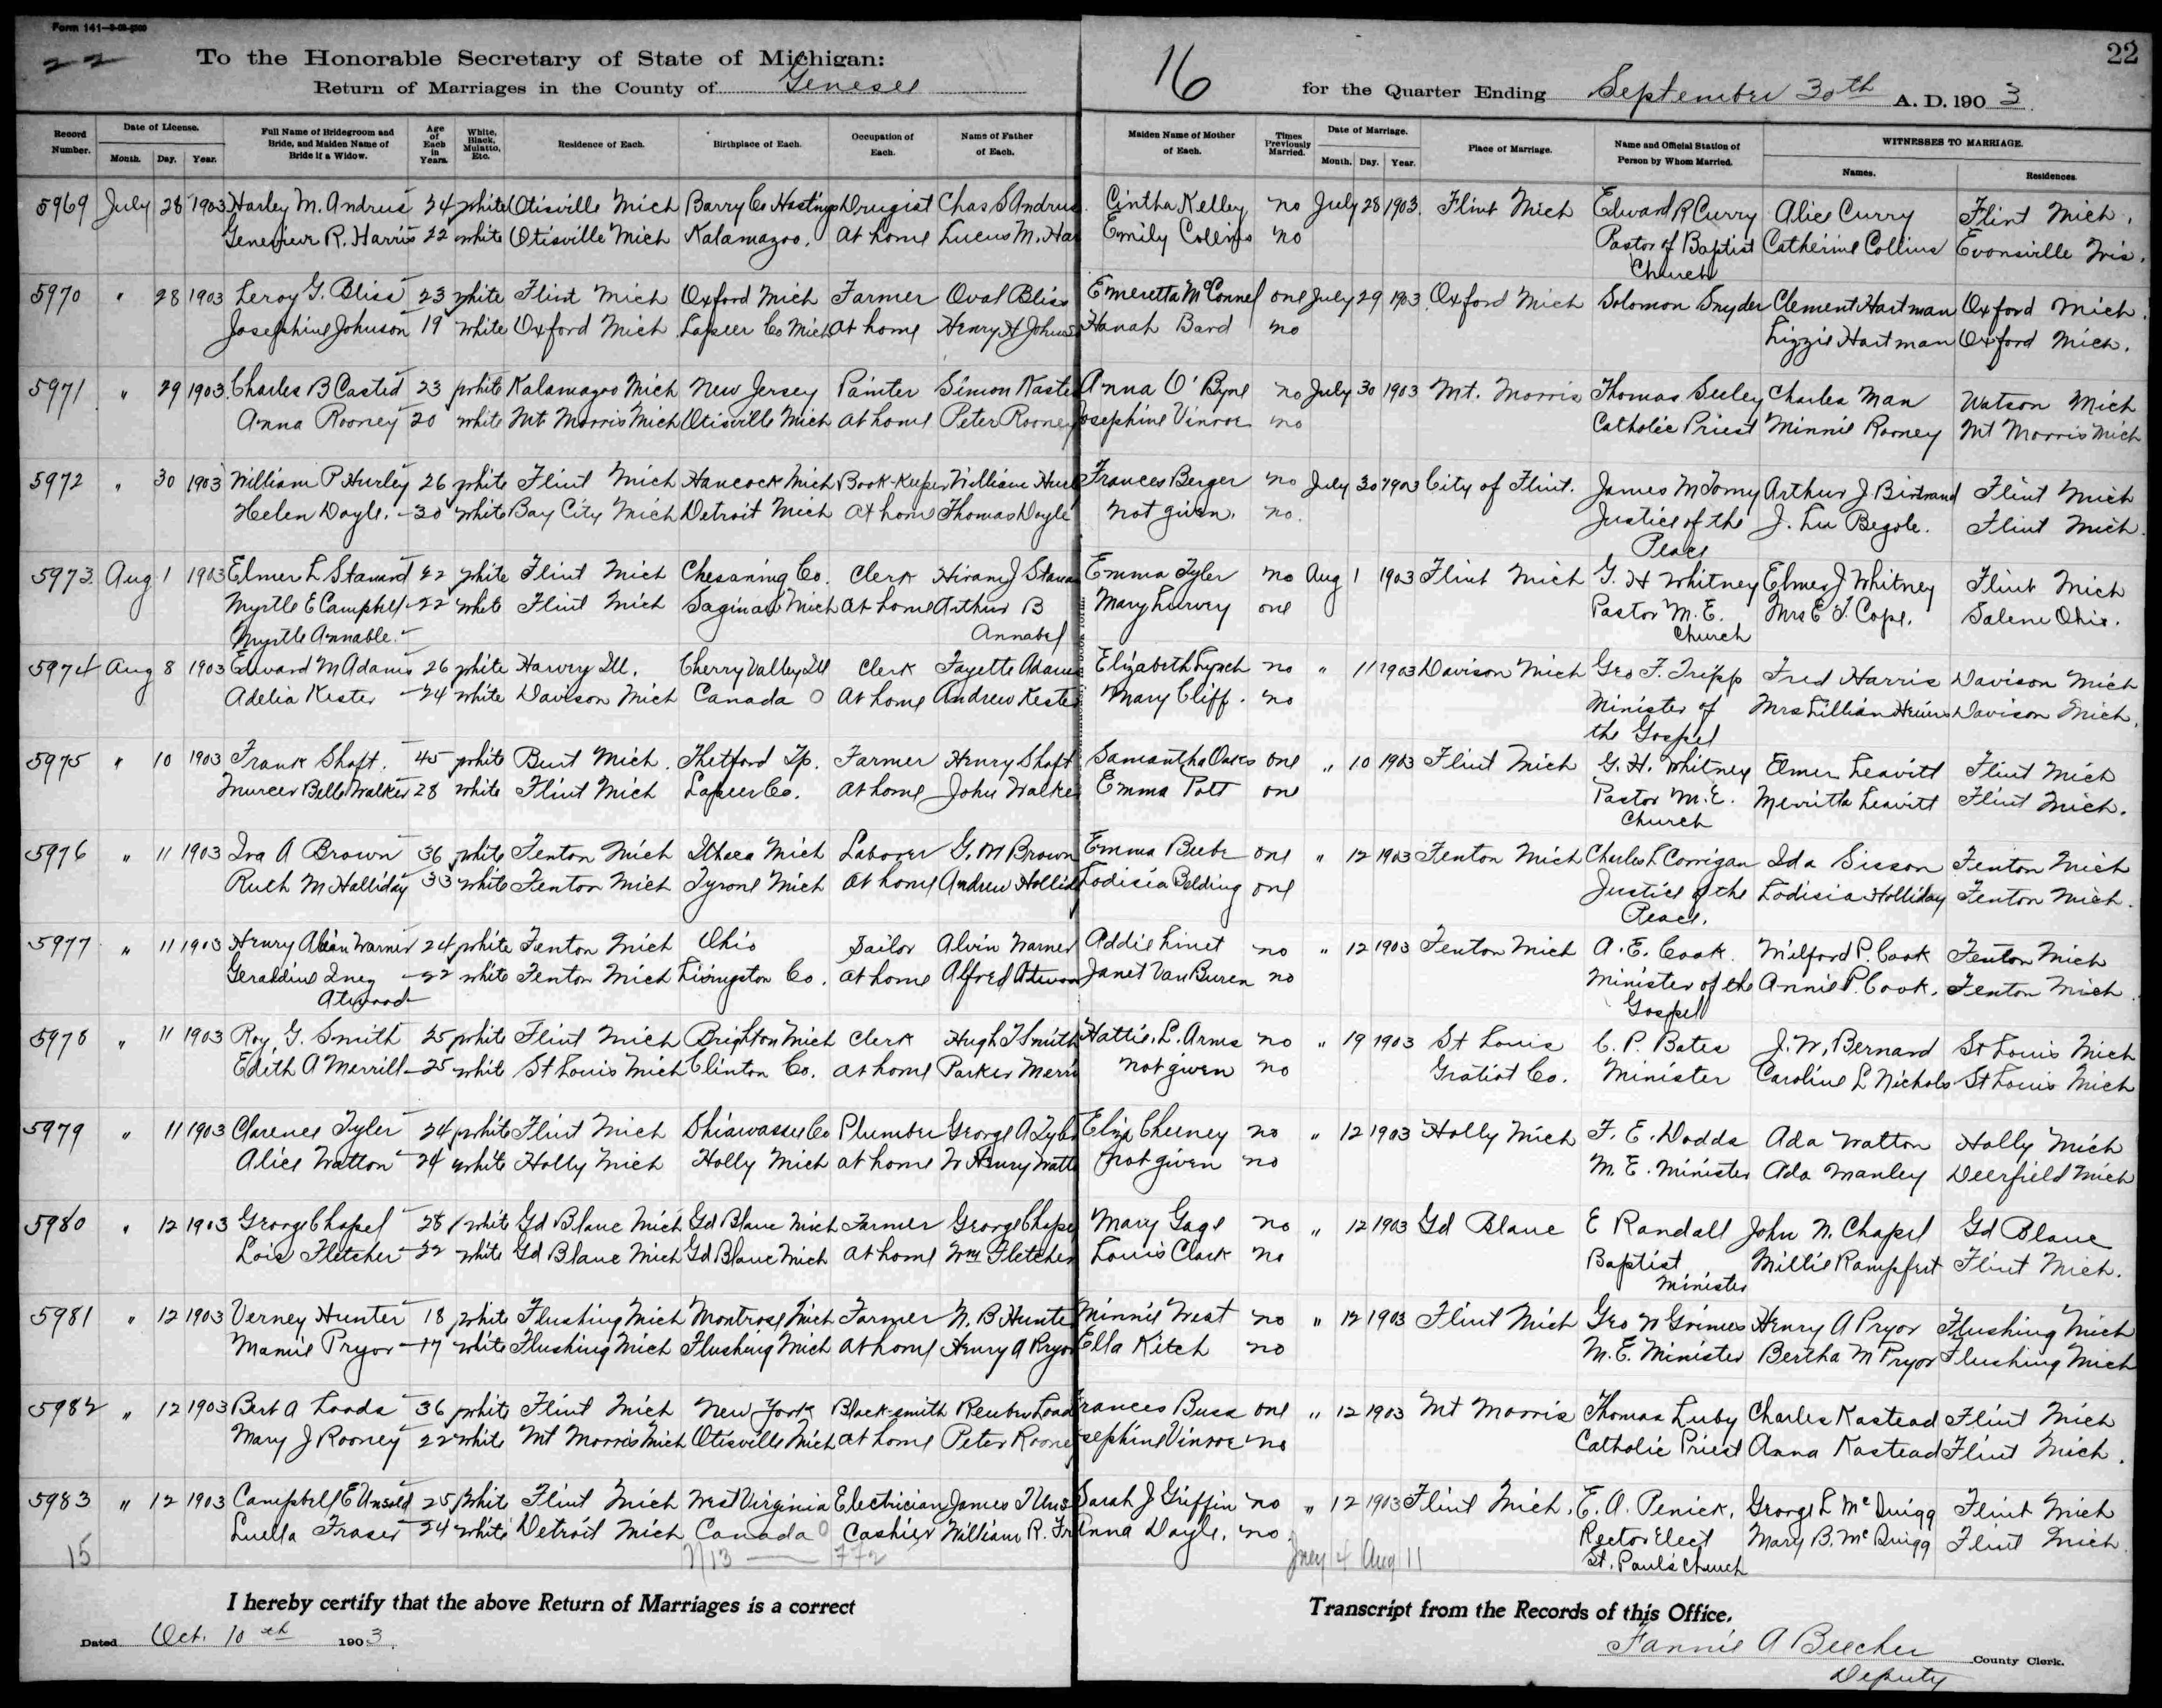 Form 141-9-03-5000
22
To the Honorable Secretary of State of Michigan:
Return of Marriages in the County of Genesee
16
for the Quarter Ending September 30th A. D. 1903.
22
Record Number. Date of License. Month. Day. Year. Full Name of Bridegroom and Bride, and Maiden Name of Bride if a Widow. Age of Each in Years. White, Black, Mulatto, Etc. Residence of Each. Birthplace of Each. Occupation of Each. Name of Father of Each. Maiden Name of Mother of Each. Times Previously Married. Date of Marriage. Month. Day. Year. Place of Marriage. Name and Official Station of Person by Whom Married. WITNESSES TO MARRIAGE. Names. Residences.
5969 July 28 1903 Harley M. Andrus 24 white Otisville Mich Barry Co Hastings Drugist Chas S Andrus Cintha Kelley no July 28 1903. Flint Mich Edward R Curry Alice Curry Flint Mich.
Genevieve R. Harris 22 white Otisville Mich Kalamazoo. at home Lucus M. Har Emily Collins no Pastor of Baptist Catherine Collins Evansville Wis.
Church
5970 " 28 1903 Leroy G. Bliss 23 white Flint Mich Oxford Mich Farmer Oval Bliss Emeretta McConnel one July 29 1903 Oxford Mich Solomon Snyder Clement Hartman Oxford Mich.
Josephine Johnson 19 white Oxford Mich Lapeer Co Mich at home Henry H Johns Hanah Bard no Lizzie Hartman Oxford Mich.
5971 " 29 1903 Charles B Casted 23 white Kalamazoo Mich New Jersey Painter Simon Kaste Anna O'Byne no July 30 1903 Mt. Morris Thomas Seeley Charles Man Watson Mich
Anna Rooney 20 white Mt Morris Mich Otisville Mich at home Peter Rooney Josephine Vinroe no Catholic Priest Minnie Rooney Mt Morris Mich
5972 " 30 1903 William P Hurley 26 white Flint Mich Hancock Mich Book-Keeper William Hurl Frances Berger no July 30 1903 City of Flint. James M Torrey Arthur J. Bertrand Flint Mich
Helen Doyle. 30 white Bay City Mich Detroit Mich at home Thomas Doyle not given. no. Justice of the J. Lu Begole. Flint Mich.
Peace
5973 Aug 1 1903 Elmer L Stanard 22 white Flint Mich Chesaning Co. Clerk Hiram J Stana Emma Tyler no Aug 1 1903 Flint Mich G. H Whitney Elmer J Whitney Flint Mich
Myrtle E Campbell 22 white Flint Mich Saginaw Mich at home Arthur B Mary one Pastor M. E. Mrs E T. Cope. Salene Ohio.
Myrtle Annable. Annabel Church
5974 Aug 8 1903 Edward M Adams 26 white Harvey Ill. Cherry Valley Ill Clerk Fayette Adams Elizabeth Lynch no " 11 1903 Davison Mich Geo F. Tripp Fred Harris Davison Mich
Adelia Kester 24 white Davison Mich Canada O at home Andrew Kester Mary Cliff. no Minister of Mrs Lillian Davison Mich.
the Gospel
5975 " 10 1903 Frank Shaft. 45 white Burt Mich. Thetford Tp. Farmer Henry Shaft Samantha Oaks one " 10 1903 Flint Mich G. H. Whitney Elmer Leavitt Flint Mich
Belle Walker 28 white Flint Mich Lapeer Co. at home John Walke Emma Pott one Pastor M.E. Merritta Leavitt Flint Mich.
Church
5976 " 11 1903 Ira A Brown 36 white Fenton Mich Ithaca Mich Laborer G. M Brown Emma Beebe one " 12 1903 Fenton Mich Charles L Corrigan Ida Sisson Fenton Mich
Ruth M Halliday 33 white Fenton Mich Tyrone Mich at home Andrew Hollid Lodisia Belding one Justice of the Lodisia Holliday Fenton Mich.
Peace.
5977 " 11 1903 Henry Alvan Warner 24 white Fenton Mich Ohio Sailor Alvin Warner Addie Linet no " 12 1903 Fenton Mich A. E. Cook. Milford P. Cook Fenton Mich
Geraldine Inez 22 white Fenton Mich Livingston Co. at home Alfred Atwood Janet Van Buren no Minister of the Annie P. Cook. Fenton Mich.
Atwood Gospel
5978 " 11 1903 Roy G. Smith 25 white Flint Mich Brighton Mich Clerk Hugh T Smith Hattie. L. Arms no " 19 1903 St Louis C. P. Bates J. W. Bernard St Louis Mich
Edith A Merrill 25 white St Louis Mich Clinton Co. at home Parker Merri not given no Gratiot Co. Minister Caroline L Nichols St Louis Mich
5979 " 11 1903 Clarence Tyler 24 white Flint Mich Shiawassee Co Plumber George A Tyle Eliza Cheeney no " 12 1903 Holly Mich F. E. Dodds Ada Watton Holly Mich
Alice Watton 24 white Holly Mich Holly Mich at home W Henry Watt not given no M. E. Minister Ada Manley Deerfield Mich
5980 " 12 1903 George Chapel 28 white Gd Blanc Mich Gd Blanc Mich Farmer George Chape Mary Gage no " 12 1903 Gd Blanc E Randall John N. Chapel Gd Blanc
Lois Fletcher 22 white Gd Blanc Mich Gd Blanc Mich at home Wm Fletcher Louis Clark no Baptist Millie Rampfert Flint Mich.
Minister
5981 " 12 1903 Verney Hunter 18 white Flushing Mich Montrose Mich Farmer N. B Hunte Minnie West no " 12 1903 Flint Mich Geo W Grimes Henry A Pryor Flushing Mich
Mamie Pryor 17 white Flushing Mich Flushing Mich at home Henry A Pryor Ella Kitch no M. E. Minister Bertha M Pryor Flushing Mich
5982 " 12 1903 Bert A Loads 36 white Flint Mich New York Black-smith Reuben Load Frances Buss one " 12 1903 Mt Morris Thomas Luby Charles Kastead Flint Mich
Mary J Rooney 22 white Mt Morris Mich Otisville Mich at home Peter Roone sephine Vinroe no Catholic Priest Anna Kastead Flint Mich.
5983 " 12 1903 Campbell E Unseld 25 white Flint Mich West Virginia Electrician James T Uns Sarah J Griffin no " 12 1903 Flint Mich. E. A. Penick. George L McQuigg Flint Mich
Luella Fraser 24 white Detroit Mich Canada O Cashier William R. Fr Anna Doyle. no Rector Elect Mary B. McQuigg Flint Mich.
15 772 July 4 Aug 11 St. Paul's Church
I hereby certify that the above Return of Marriages is a correct Transcript from the Records of this Office.
Dated Oct. 10th 1903.
Fannie A Beecher County Clerk.
Deputy